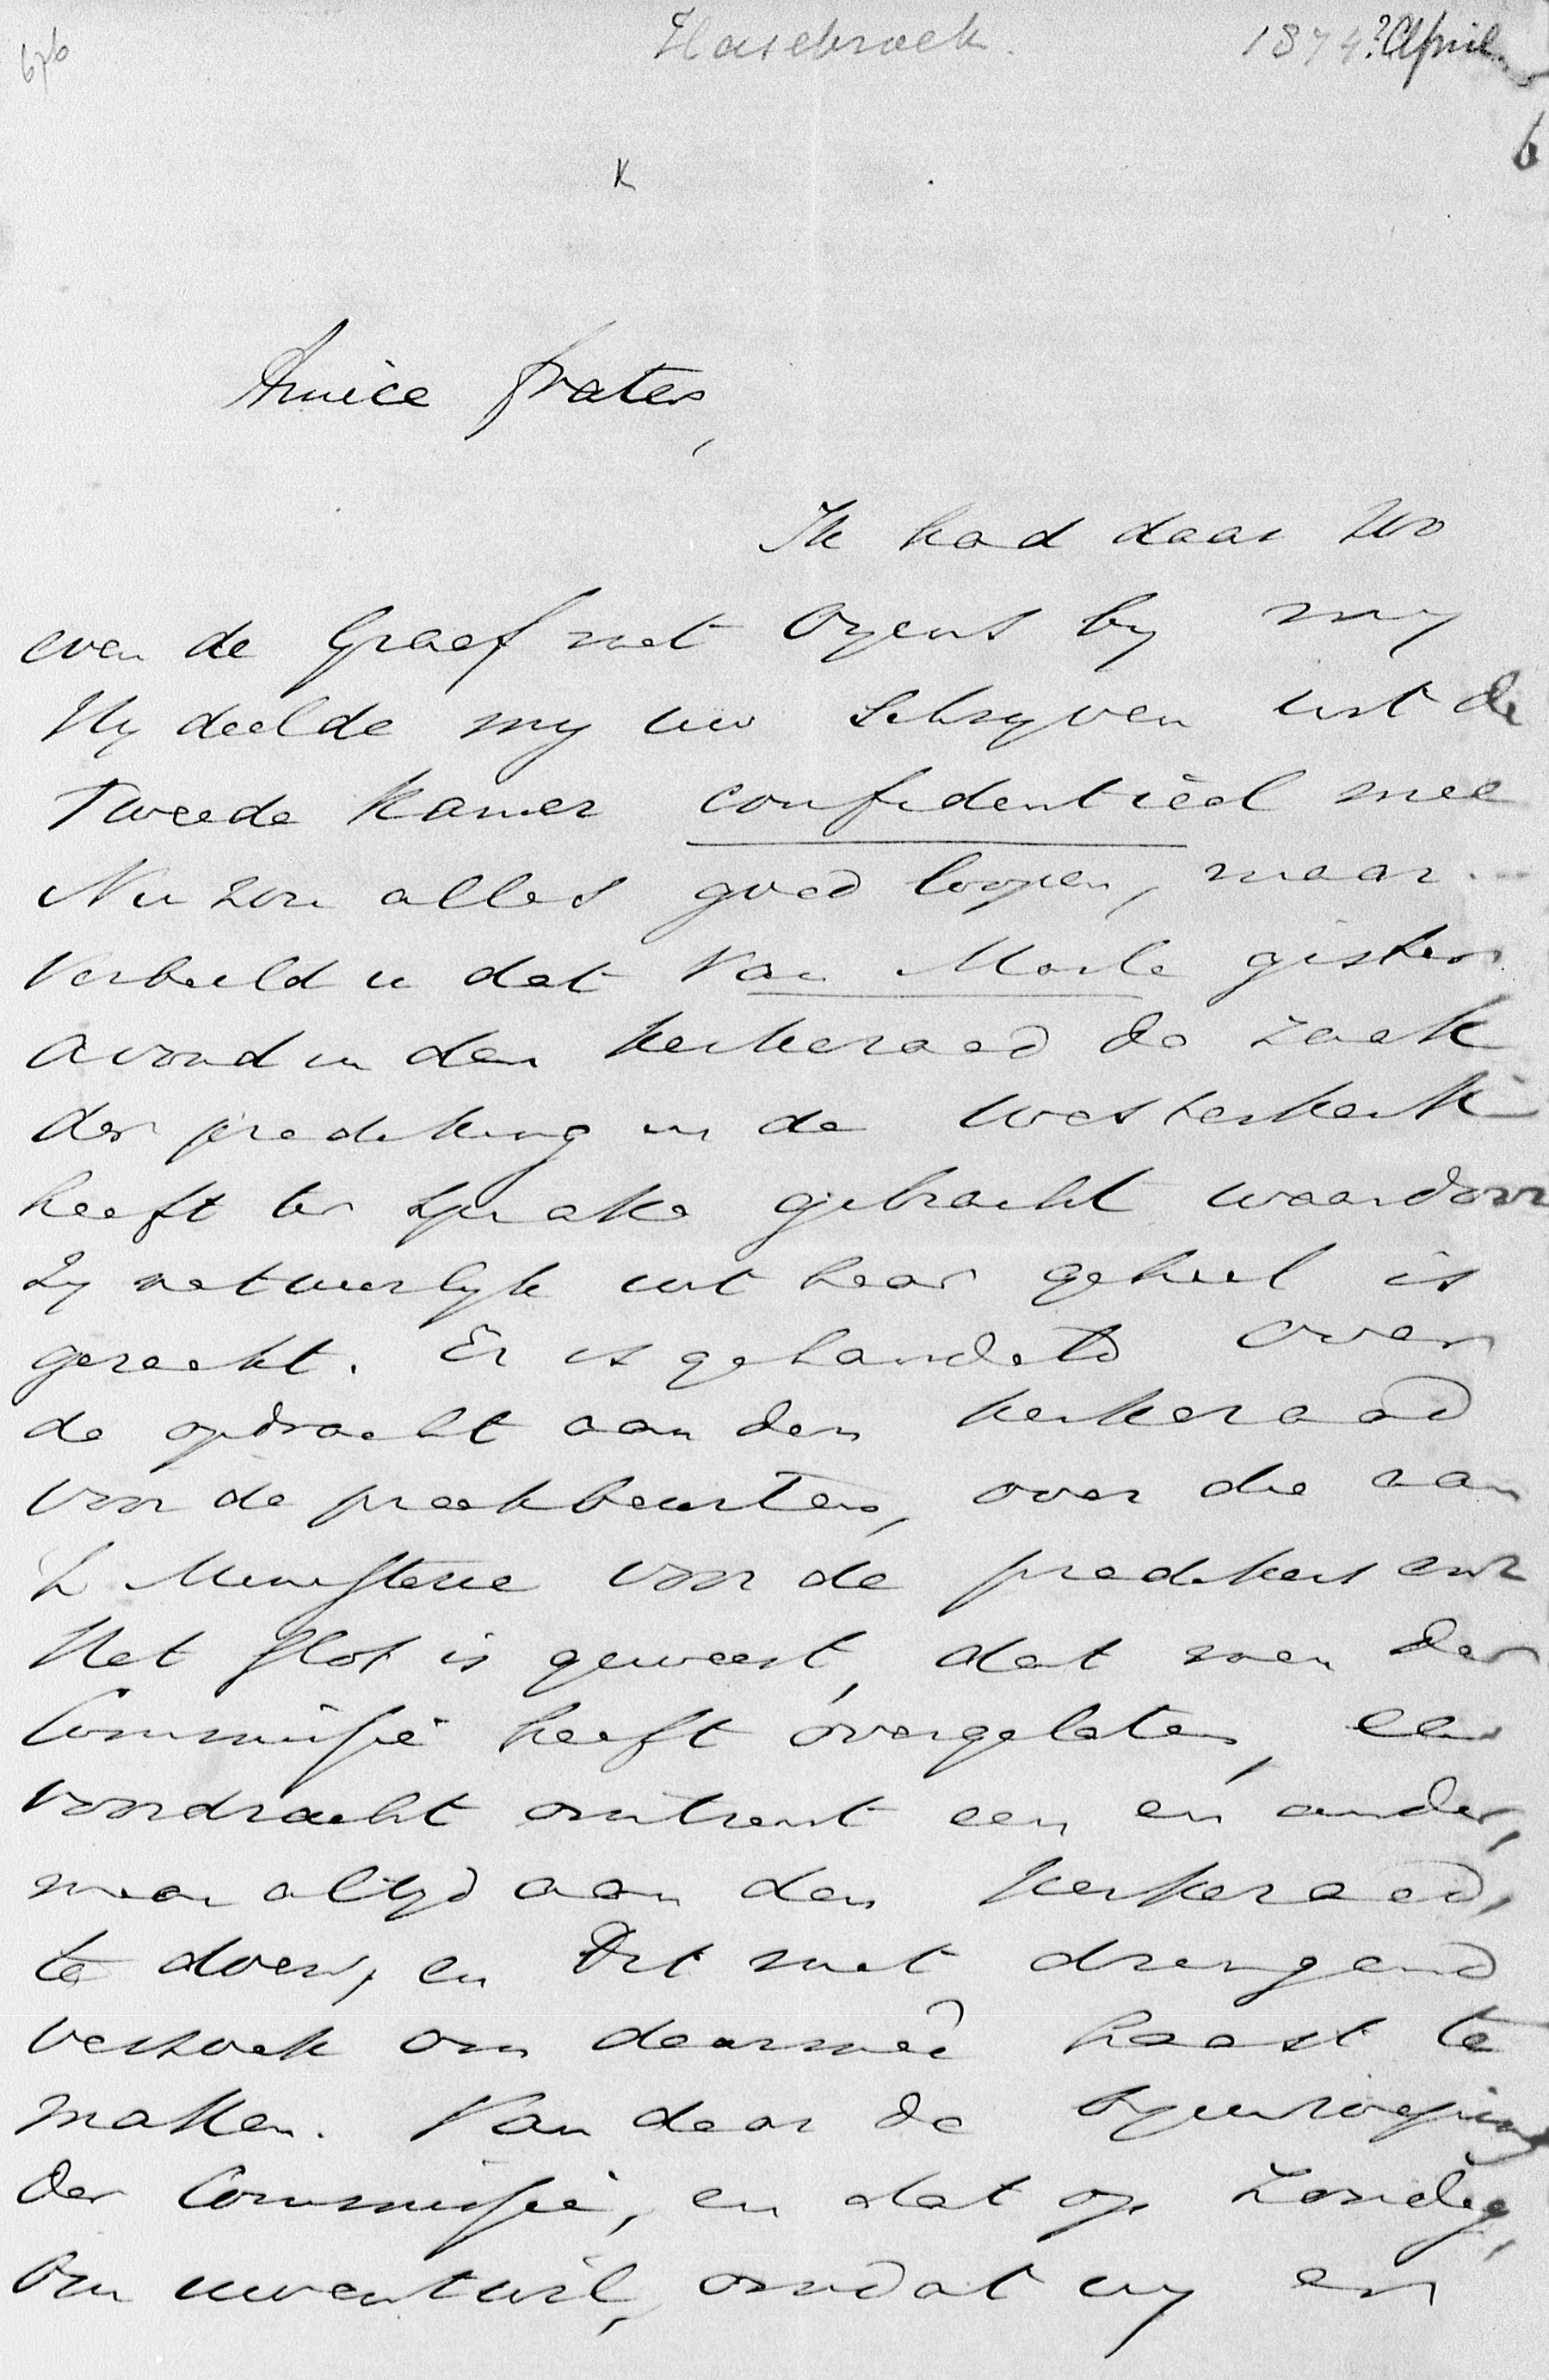 676 Hasebroek. 1874? April.
6
K
Amice frater,
Ik had daar zoo
even de Graef met Oyens by my
Hy deelde my uw schryven uit de
Tweede Kamer confidentiëel mee
Nu zou alles goed loopen, maar...
Verbeeld u dat Van Marle gister
avond in den kerkeraad de zaak
der prediking in de Westerkerk
heeft ter sprake gebracht waardoor
zy natuurlyk uit haar geheel is
geraakt. Er is gehandeld over
de opdracht aan den kerkeraad
voor de preekbeurten, over die aan
't Ministerie voor de predikers enz
Het slot is geweest, dat men der
Commissie heeft overgelaten, een
voordracht omtrent een en ander,
maar altyd aan den kerkeraad,
te doen, en dit met dringend
verzoek om daarmeê haast te
maken. Van daar de byeenroeping
der Commissie, en dat op Zondag,
om uwentwil, omdat wy er